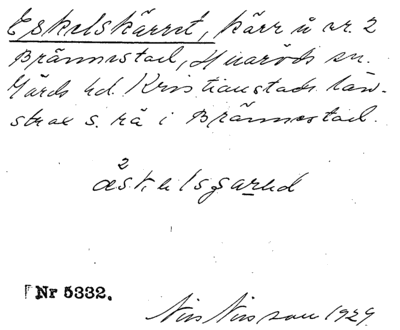 Eskelskärret, kärr å nr. 2
Brännestad, Huaröds sn.
Gärds hd. Kristianstads län.
strax s. rå i Brännestad.
2
Nr 5332.
Nils Nilsson 1929